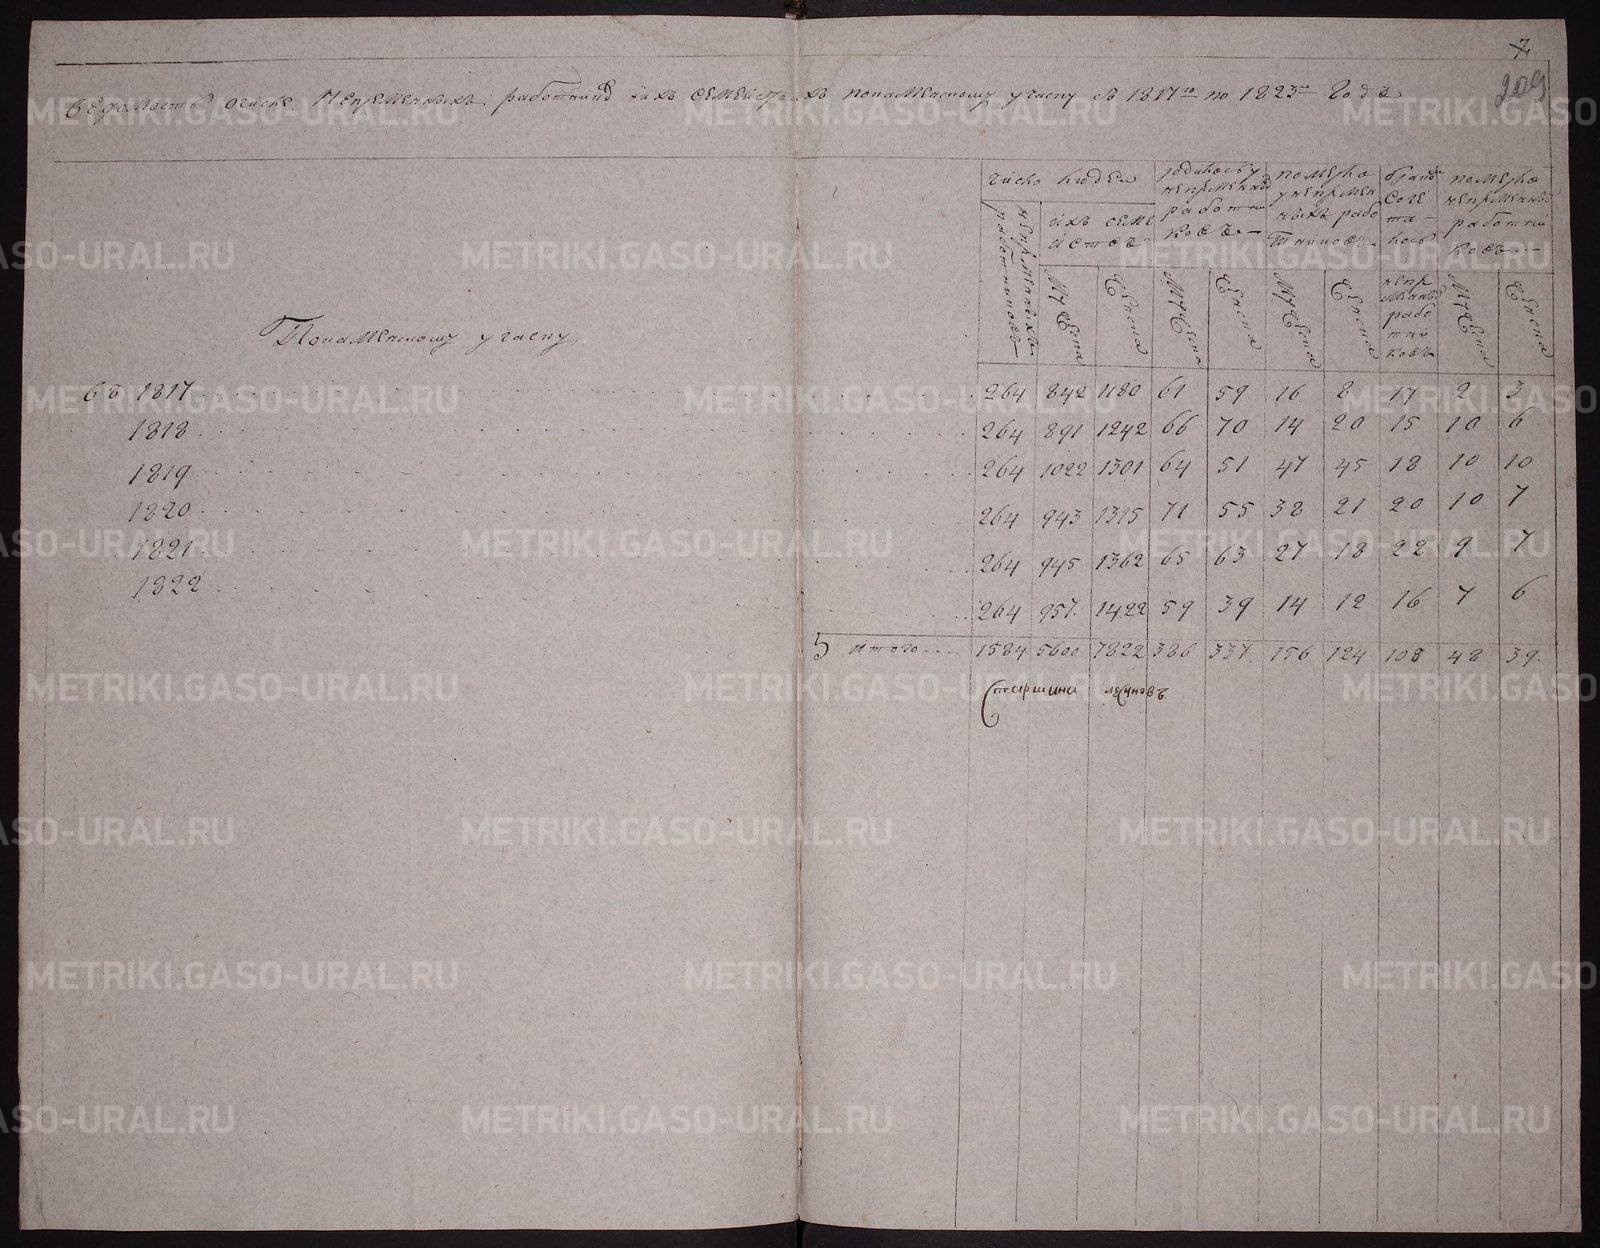 7
209
ведомость очисле Непременныхъ работник ихъ семействахъ покаменскому учаску съ 1817го по 1823го Года
число людей
непременныхъ работниковъ
ихъ семействъ
Мужеска
Женска
родилось у непременных работниковъ
Мужеска
Женска
померло у непременныхъ работниковъ
Мужеска
Женска
браком сочеталось
непременных работниковъ
померло непременных работниковъ
Мужеска
Женска
Покаменскому учаску
въ 1817 264 842 1180 61 59 16 8 17 2 3
1818 264 891 1242 66 70 14 20 15 10 6
1819 264 1022 1301 64 51 47 45 18 10 10
1820 264 943 1315 71 55 38 21 20 10 7
1821 264 945 1362 65 63 27 18 22 9 7
1822 264 957 1422 59 39 14 12 16 7 6
итого 1584 5600 7822 386 337 156 124 108 48 39
Старшина
METRIKI.GASO-URAL.RU